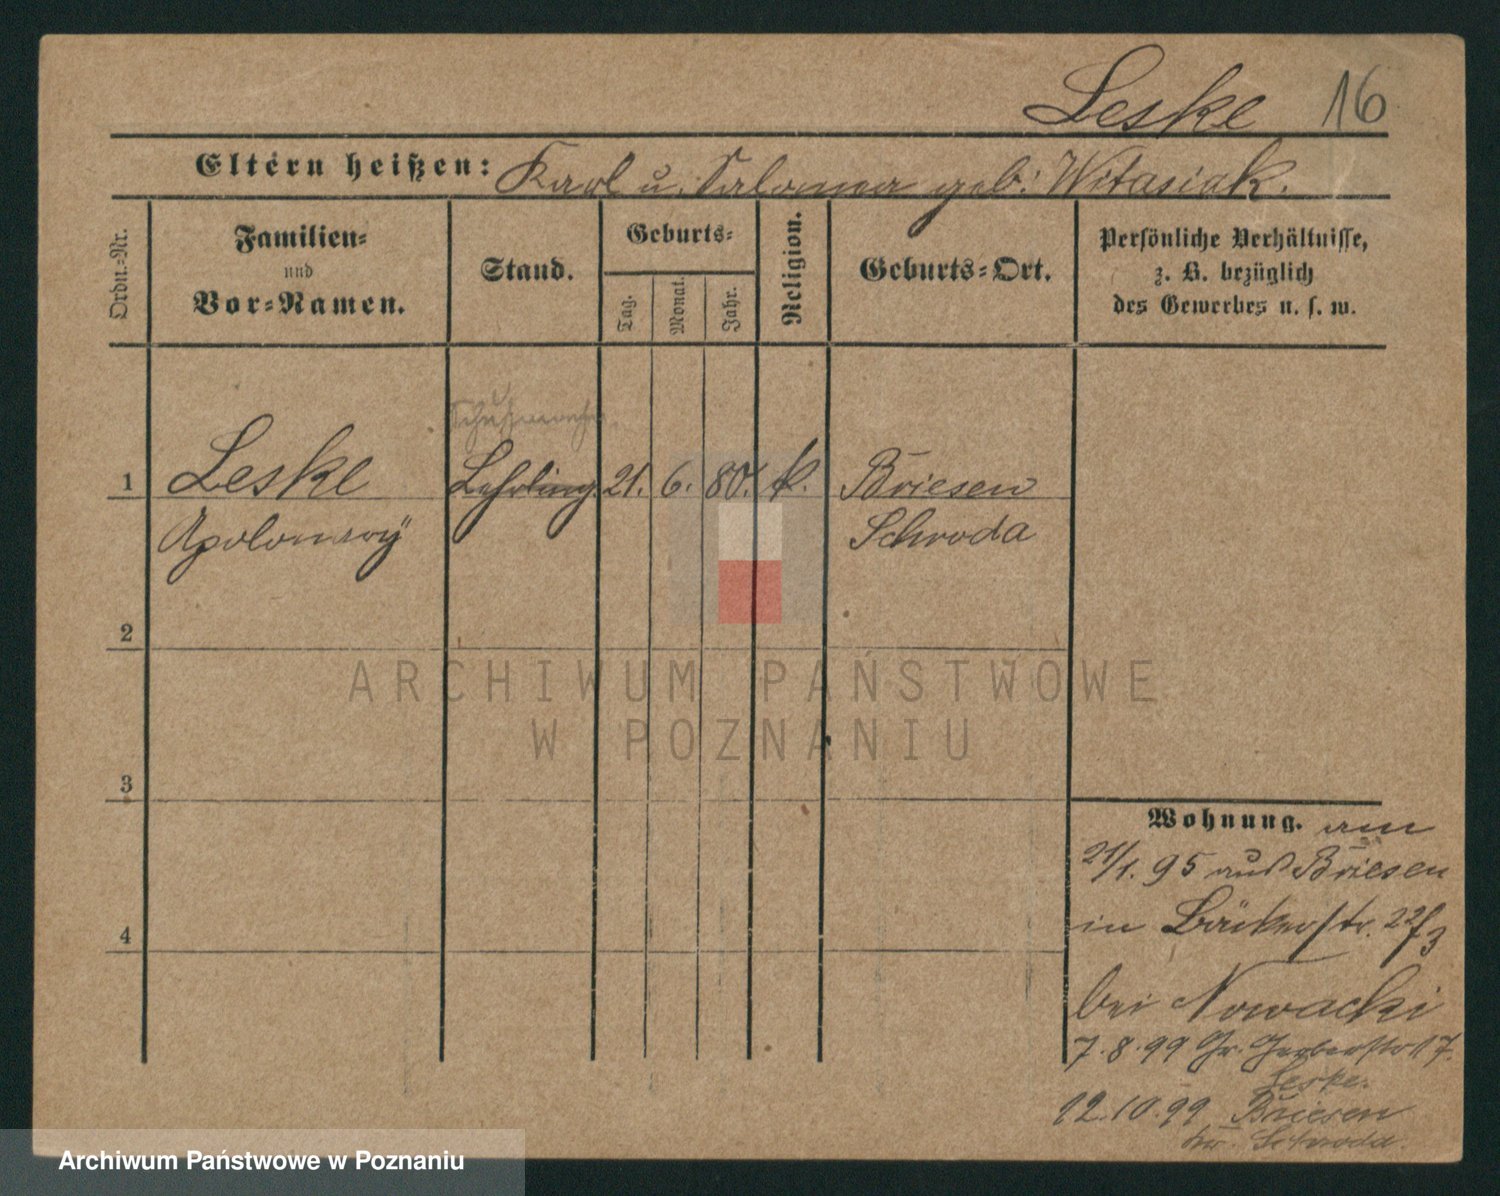 Leske 16
Eltern heißen: Karl u. Saloma geb: Witasiak.
Ordn.-Nr.
Familien-
und
Vor-Namen.
Stand.
Geburts-
Tag.
Monat.
Jahr.
Religion.
Geburts-Ort.
Persönliche Verhältnisse,
z. B. bezüglich
des Gewerbes u. s. w.
Schuhmacher
1 Leske Lehrling 21. 6. 80. k. Briesen
Apolonary Schroda
2
ARCHIWUM PAŃSTWOWE
W POZNANIU
3
Wohnung. am
21/1. 95 aus Briesen
in Bäckerstr. 22/3
4
bei Nowacki
7.8.99 Gr. Gerberstr 17.
Leske.
12.10.99 Briesen
Kr. Schroda.
Archiwum Państwowe w Poznaniu